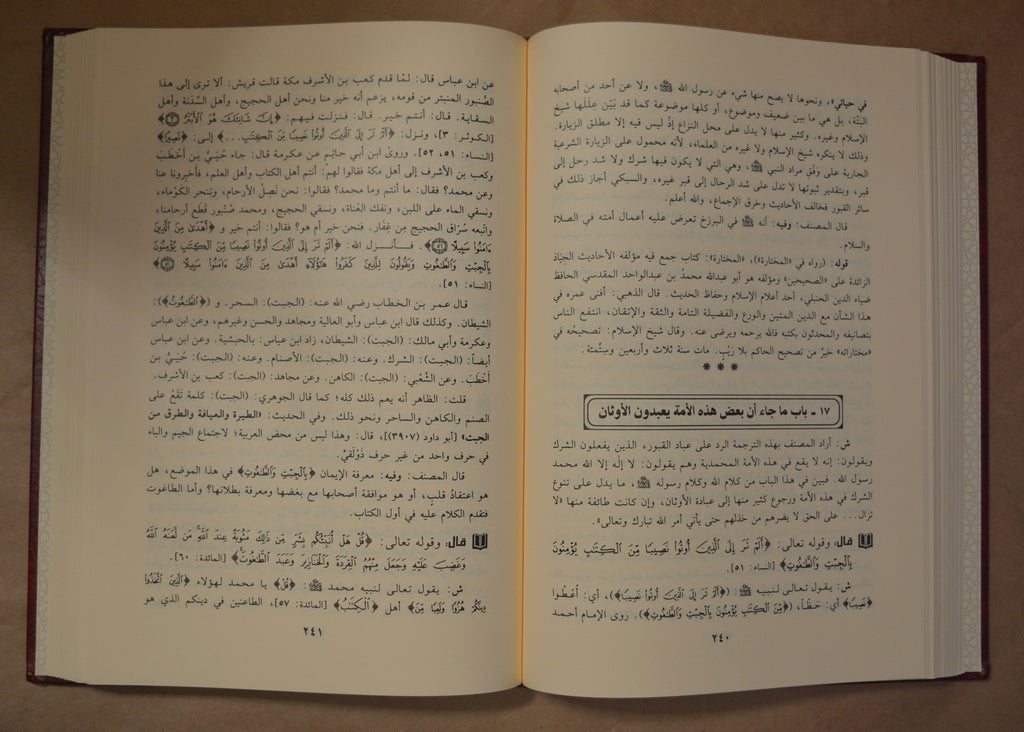 في حياتي»، ونحوها لا يصح منها شيء عن رسول الله ﷺ، ولا عن أحد من أصحابه
البتّة، بل هي ما بين ضعيف وموضوع، أو كلها موضوعة كما قد بَيَّن عِلَلَها شيخ
الإسلام وغيره. وكثير منها لا يدل على محل النزاع إذ ليس فيه إلا مطلق الزيارة.
وذلك لا ينكره شيخ الإسلام ولا غيره من العلماء، لأنه محمول على الزيارة الشرعية
الجارية على وَفْق مراد النبي ﷺ، وهي التي لا يكون فيها شرك ولا شد رحل إلى
قبر، وبتقدير ثبوتها لا تدل على شد الرحال إلى قبر غيره، والسبكي أجاز ذلك في
سائر القبور فخالف الأحاديث وخرق الإجماع، والله أعلم.
قال المصنف: وفيه: أنه ﷺ في البرزخ تعرض عليه أعمال أمته في الصلاة
والسلام.
قوله: (رواه في «المختارة»)، «المختارة»: كتاب جمع فيه مؤلفه الأحاديث الجِيَاد
الزائدة على «الصحيحين» ومؤلفه هو أبو عبدالله محمدُ بن عبدالواحد المقدسي الحافظ
ضياء الدين الحنبلي، أحد أعلام الإسلام وحفاظ الحديث. قال الذهبي: أفنى عمره في
هذا الشأن مع الدين المتين والورع والفضيلة التامة والثقة والإتقان، انتفع الناس
بتصانيفه والمحدثون بكتبه فالله يرحمه ويرضى عنه. وقال شيخ الإسلام: تصحيحُه في
«مختاراته» خيرٌ من تصحيح الحاكم بلا رَيْبٍ. مات سنة ثلاث وأربعين وسِتُّمئة.
* * *
١٧ - باب ما جاء أن بعض هذه الأمة يعبدون الأوثان
ش: أراد المصنف بهذه الترجمة الرد على عباد القبور، الذين يفعلون الشرك
ويقولون: إنه لا يقع في هذه الأمة المحمدية وهم يقولون: لا إله إلا الله محمد
رسول الله. فبين في هذا الباب من كلام الله وكلام رسوله ﷺ، ما يدل على تنوع
الشرك في هذه الأمة ورجوع كثير منها إلى عبادة الأوثان، وإن كانت طائفة منها «لا
تزال... على الحق لا يضرهم من خذلهم حتى يأتي أمر الله تبارك وتعالى».
قال: وقوله تعالى: ﴿أَلَمْ تَرَ إِلَى الَّذِينَ أُوتُوا نَصِيبًا مِّنَ الْكِتَٰبِ يُؤْمِنُونَ
بِالْجِبْتِ وَالطَّٰغُوتِ﴾ [النساء: ٥١].
ش: يقول تعالى لنبيه ﷺ: (﴿أَلَمْ تَرَ إِلَى الَّذِينَ أُوتُوا نَصِيبًا﴾)، أي: أُعْطُوا
﴿نَصِيبًا﴾ أي: حَظًّا، (﴿مِّنَ الْكِتَٰبِ يُؤْمِنُونَ بِالْجِبْتِ وَالطَّٰغُوتِ﴾). روى الإمام أحمد
٢٤٠
عن ابن عباس قال: لمّا قدم كعب بن الأشرف مكة قالت قريش: ألا ترى إلى هذا
الصُّنبور المنبتر من قومه، يزعم أنه خير منا ونحن أهل الحجيج، وأهل السِّدَنة وأهل
السقاية. قال: أنتم خير. قال: فنزلت فيهم: ﴿إِنَّ شَانِئَكَ هُوَ الْأَبْتَرُ ٣﴾
[الكوثر: ٣]، ونزل: ﴿أَلَمْ تَرَ إِلَى الَّذِينَ أُوتُوا نَصِيبًا مِّنَ الْكِتَٰبِ...﴾ إلى: ﴿نَصِيرًا﴾
[النساء: ٥١، ٥٢]. وروى ابن أبي حاتِم عن عكرمة قال: جاء حُيَيُّ بن أَخْطَبَ
وكعب بن الأشرف إلى أهل مكة فقالوا لهم: أنتم أهل الكتاب وأهل العلم، فأخبرونا عنا
وعن محمد؟ فقال: ما أنتم وما محمد؟ فقالوا: نحن نَصِلُ الأرحام، وننحر الكَوْماء،
ونسقي الماء على اللبن، ونفك العُناة، ونسقي الحجيج، ومحمد صُنْبور قَطَع أرحامنا،
واتَّبعه سُرّاق الحجيج من غِفَار. فنحن خير أم هو؟ فقالوا: أنتم خير و ﴿أَهْدَىٰ مِنَ الَّذِينَ
ءَامَنُوا سَبِيلًا ٥١﴾. فــأنــزل الله: ﴿أَلَمْ تَرَ إِلَى الَّذِينَ أُوتُوا نَصِيبًا مِّنَ الْكِتَٰبِ يُؤْمِنُونَ
بِالْجِبْتِ وَالطَّٰغُوتِ وَيَقُولُونَ لِلَّذِينَ كَفَرُوا هَٰٓؤُلَآءِ أَهْدَىٰ مِنَ الَّذِينَ ءَامَنُوا سَبِيلًا ٥١﴾
[النساء: ٥١].
قال عمر بن الخطاب رضي الله عنه: (الجبت): السحر. و (﴿الطَّٰغُوتُ﴾):
الشيطان. وكذلك قال ابن عباس وأبو العالية ومجاهد والحسن وغيرهم، وعن ابن عباس
وعكرمة وأبي مالك: (الجبت): الشيطان، زاد ابن عباس: بالحبشية. وعن ابن عباس
أيضاً: (الجبت): الشرك. وعنه: (الجبت): الأصنام. وعنه: (الجبت): حُيَيُّ بن
أَخْطَبَ. وعن الشَّعْبي: (الجبت): الكاهن. وعن مجاهد: (الجبت): كعب بن الأشرف.
قلت: الظاهر أنه يعم ذلك كله؛ كما قال الجوهري: (الجبت): كلمة تَقَعُ على
الصنم والكاهن والساحر ونحو ذلك. وفي الحديث: «الطيرة والعيافة والطرق من
الجبت» [أبو داود (٣٩٠٧)]، قال: وهذا ليس من محض العربية؛ لاجتماع الجيم والباء
في حرف واحد من غير حرف ذَوْلَقيٍّ.
قال المصنف: وفيه: معرفة الإيمان ﴿بِالْجِبْتِ وَالطَّٰغُوتِ﴾ في هذا الموضع، هل
هو اعتقادُ قلب، أو هو موافقة أصحابها مع بغضها ومعرفة بطلانها؟ وأما الطاغوت
فتقدم الكلام عليه في أول الكتاب.
قال: وقوله تعالى: ﴿قُلْ هَلْ أُنَبِّئُكُم بِشَرٍّ مِّن ذَٰلِكَ مَثُوبَةً عِندَ اللَّهِ مَن لَّعَنَهُ اللَّهُ
وَغَضِبَ عَلَيْهِ وَجَعَلَ مِنْهُمُ الْقِرَدَةَ وَالْخَنَازِيرَ وَعَبَدَ الطَّٰغُوتَ﴾ [المائدة: ٦٠].
ش: يقول تعالى لنبيه محمد ﷺ: ﴿قُلْ﴾ يا محمد لهؤلاء ﴿الَّذِينَ اتَّخَذُوا
دِينَكُمْ هُزُوًا وَلَعِبًا مِّنَ﴾ أهل ﴿الْكِتَٰبَ﴾ [المائدة: ٥٧]، الطاعنين في دينكم الذي هو
٢٤١